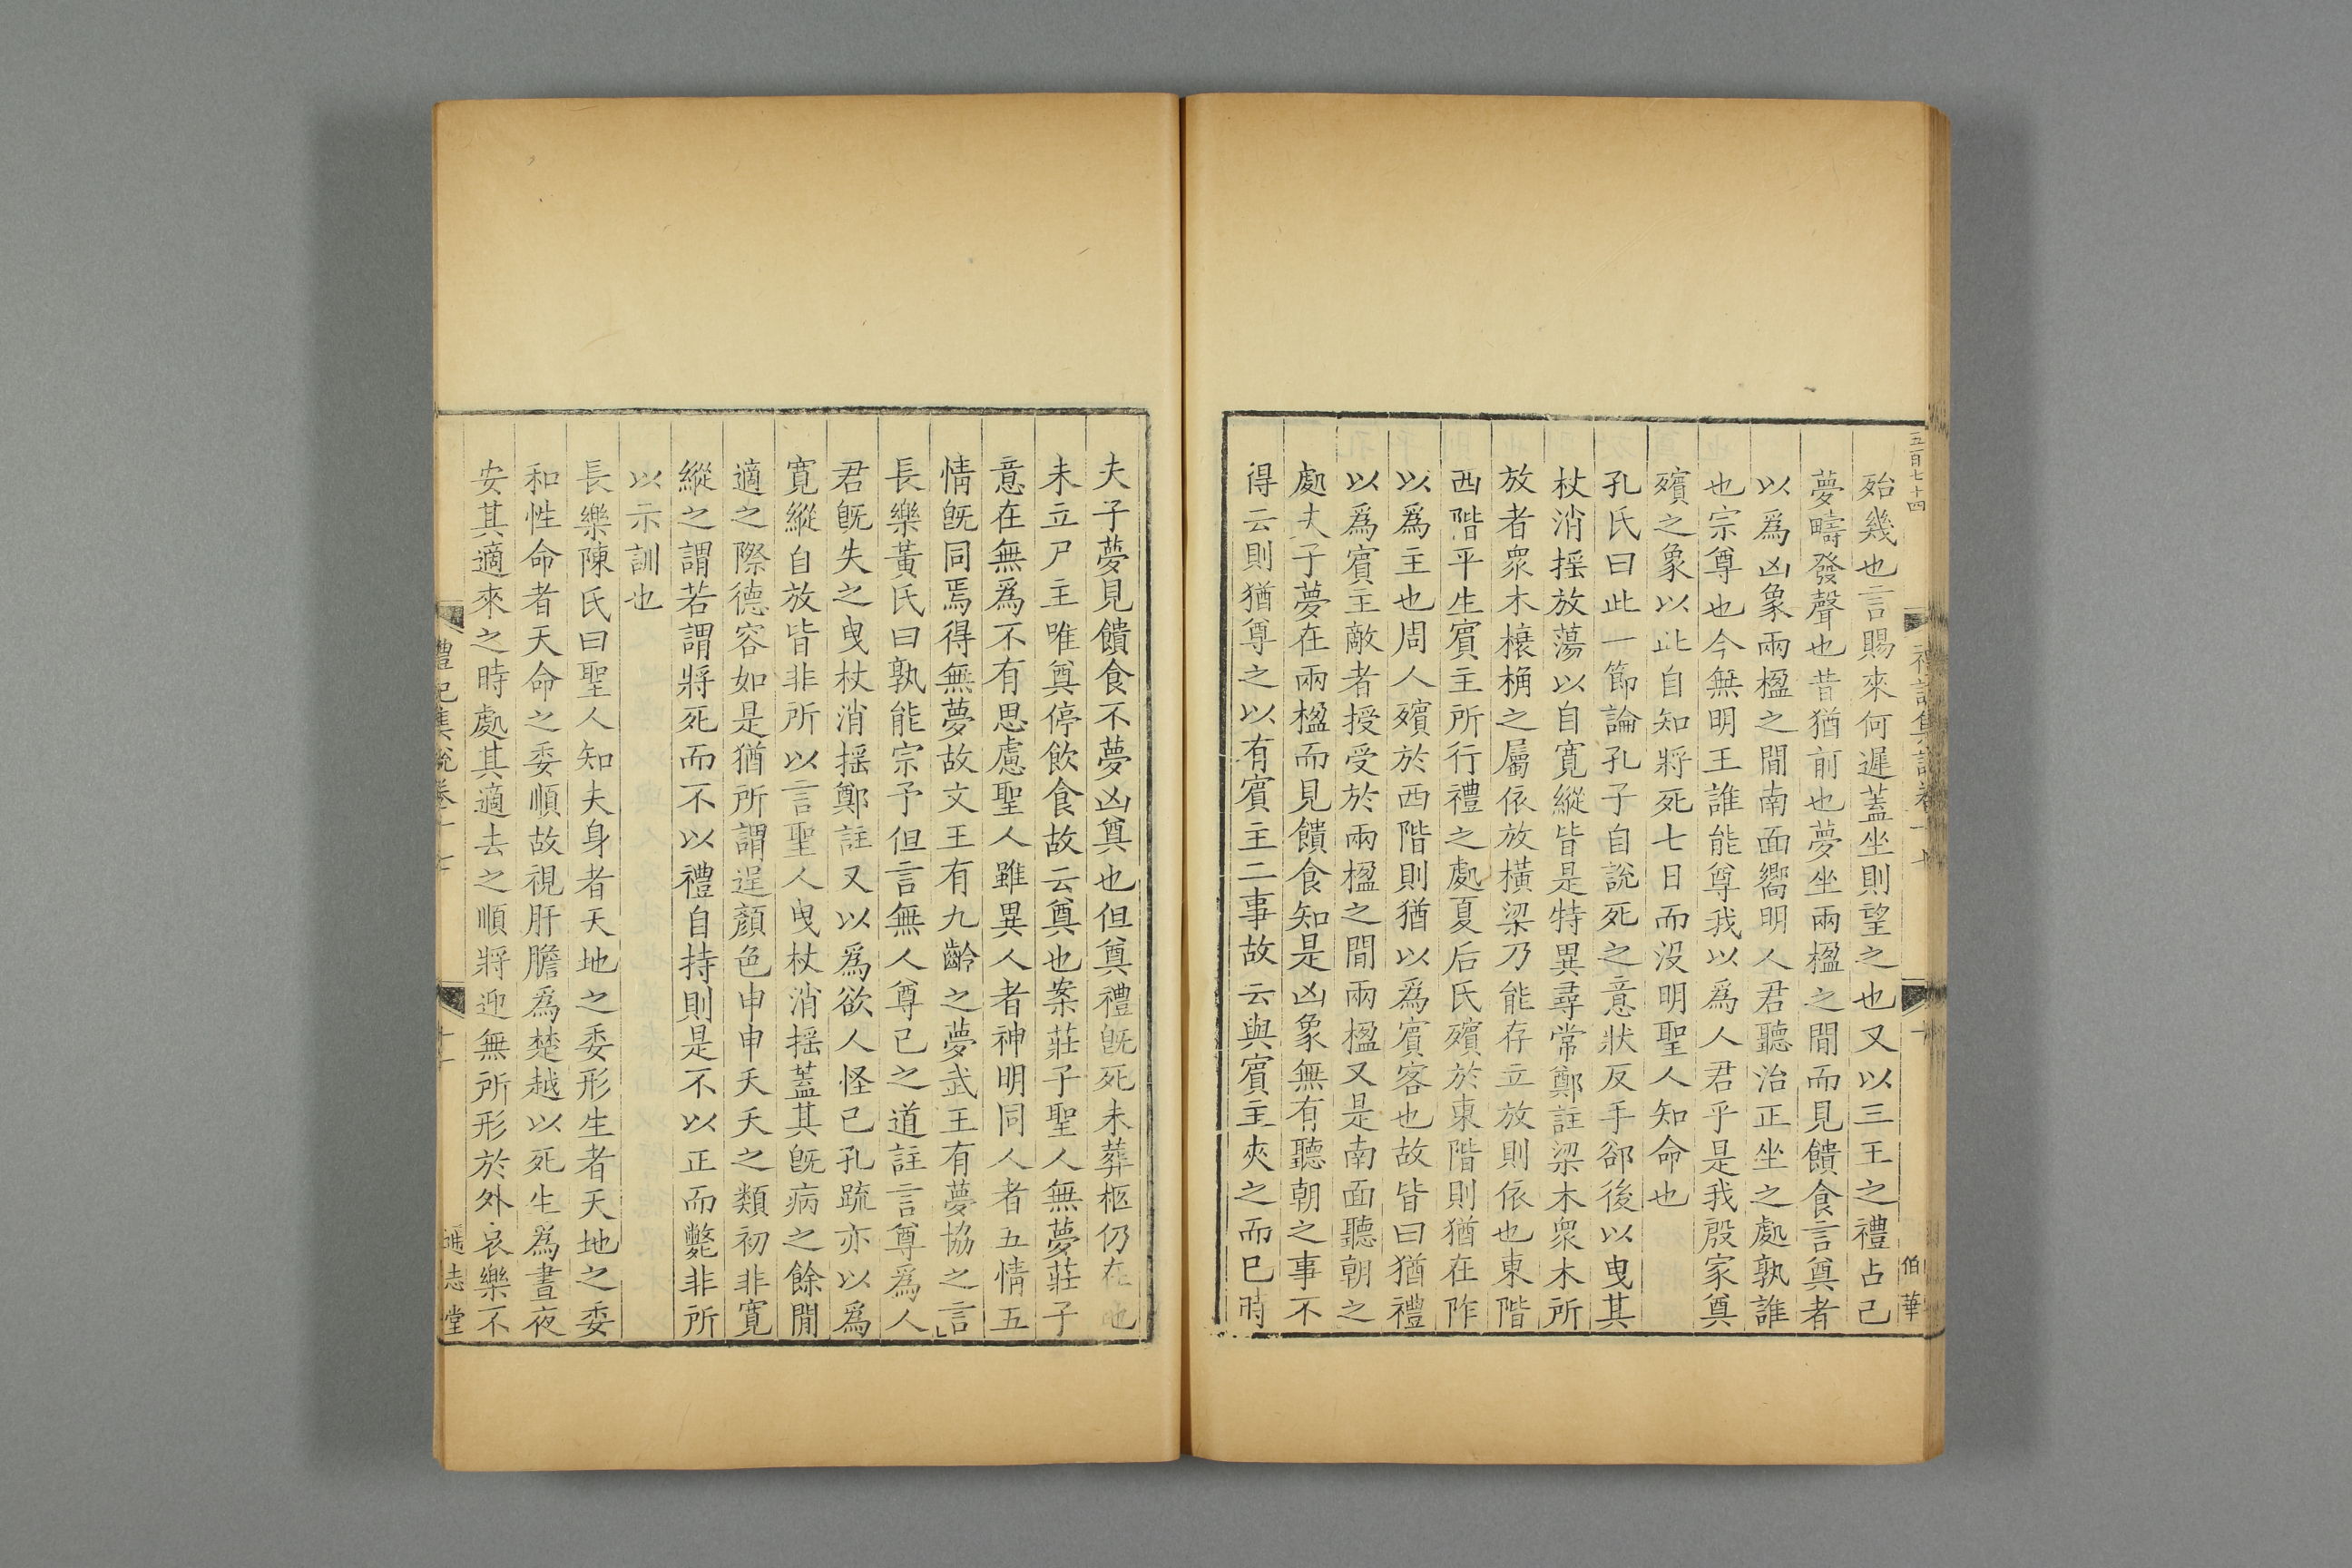 五百七十四
禮記集說卷十七
十
伯華
殆幾也言賜來何遲蓋坐則望之也又以三王之禮占己
夢疇發聲也昔猶前也夢坐兩楹之間而見饋食言奠者
以爲凶象兩楹之間南面嚮明人君聽治正坐之處孰誰
也宗尊也今無明王誰能尊我以爲人君乎是我殷家奠
殯之象以此自知將死七日而没明聖人知命也
孔氏曰此一節論孔子自說死之意狀反手郤後以曳其
杖消揺放蕩以自寛縱皆是特異尋常鄭註梁木衆木所
放者衆木榱桷之屬依放橫梁乃能存立放則依也東階
西階平生賓主所行禮之處夏后氏殯於東階則猶在阼
以爲主也周人殯於西階則猶以爲賓客也故皆曰猶禮
以爲賓主敵者授受於兩楹之間兩楹又是南面聽朝之
處夫子夢在兩楹而見饋食知是凶象無有聽朝之事不
得云則猶尊之以有賓主二事故云與賓主夾之而已時
夫子夢見饋食不夢凶奠也但奠禮旣死未葬柩仍在地
未立尸主唯奠停飲食故云奠也案莊子聖人無夢莊子
意在無爲不有思慮聖人雖異人者神明同人者五情五
情旣同焉得無夢故文王有九齡之夢武王有夢協之言
長樂黃氏曰孰能宗予但言無人尊己之道註言尊爲人
君旣失之曳杖消揺鄭註又以爲欲人怪己孔疏亦以爲
寛縱自放皆非所以言聖人曳杖消揺蓋其旣病之餘閒
適之際德容如是猶所謂逞顏色申申夭夭之類初非寛
縱之謂若謂將死而不以禮自持則是不以正而斃非所
以示訓也
長樂陳氏曰聖人知夫身者天地之委形生者天地之委
和性命者天命之委順故視肝膽爲楚越以死生爲晝夜
安其適來之時處其適去之順將迎無所形於外哀樂不
禮記集說卷十七
十一
通志堂